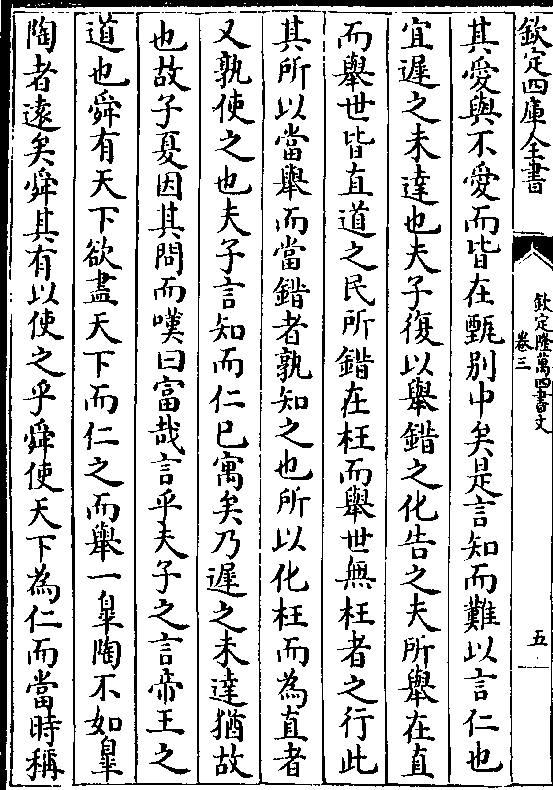 欽定四庫全書
欽定隆萬四書文
卷三
五
其愛與不愛而皆在甄别中矣是言知而難以言仁也
宜遲之未達也夫子復以舉錯之化告之夫所舉在直
而舉世皆直道之民所錯在枉而舉世無枉者之行此
其所以當舉而當錯者孰知之也所以化枉而為直者
又孰使之也夫子言知而仁已寓矣乃遲之未達猶故
也故子夏因其問而嘆曰富哉言乎夫子之言帝王之
道也舜有天下欲盡天下而仁之而舉一臯陶不如臯
陶者遠矣舜其有以使之乎舜使天下為仁而當時稱